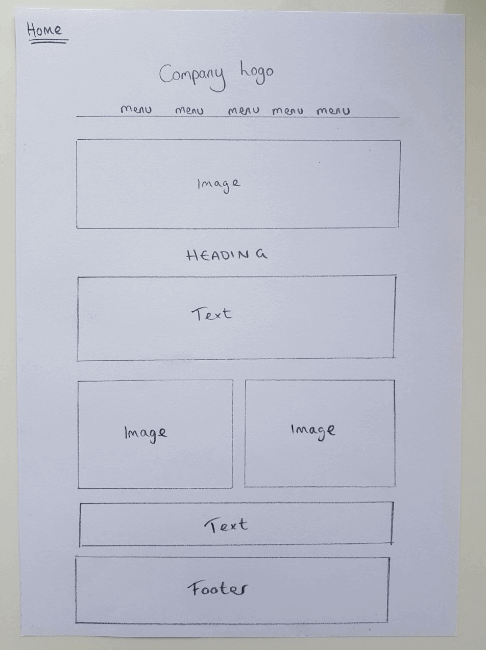 Home
Company Logo
menu menu menu menu menu
Image
HEADING
Text
Image Image
Text
Footer